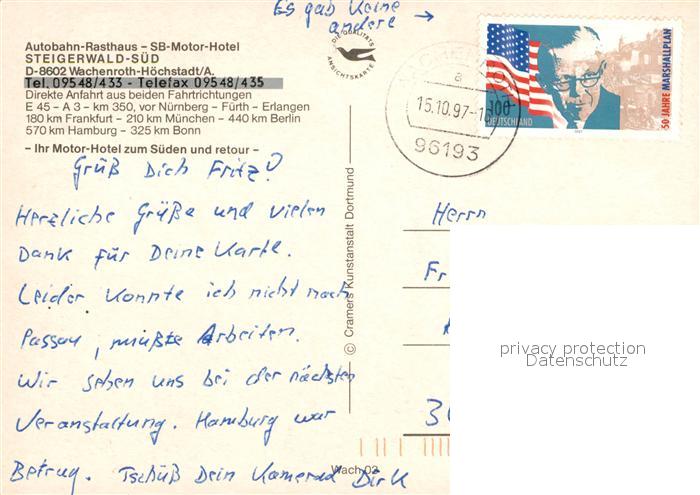 Es gab keine
andere →
Autobahn-Rasthaus – SB-Motor-Hotel
STEIGERWALD-SÜD
D-8602 Wachenroth-Höchstadt/A.
Tel. 09548/433 - Telefax 09548/435
Direkte Anfahrt aus beiden Fahrtrichtungen
E 45 – A 3 – km 350, vor Nürnberg – Fürth – Erlangen
180 km Frankfurt – 210 km München – 440 km Berlin
570 km Hamburg – 325 km Bonn
– Ihr Motor-Hotel zum Süden und retour –
DIE QUALITÄTS
ANSICHTSKARTE
a
15.10.97-1
96193
100
DEUTSCHLAND
50 JAHRE MARSHALLPLAN
1997
Grüß Dich Fritz!
Herzliche Grüße und vielen
Dank für Deine Karte.
Leider konnte ich nicht nach
Passau, mußte Arbeiten.
Wir sehen uns bei der nächsten
Veranstaltung. Hamburg war
Betrug. Tschüß Dein Kamerad Dirk
© Cramers Kunstanstalt Dortmund
Wach 02
Herrn
Fr
3
privacy protection
Datenschutz